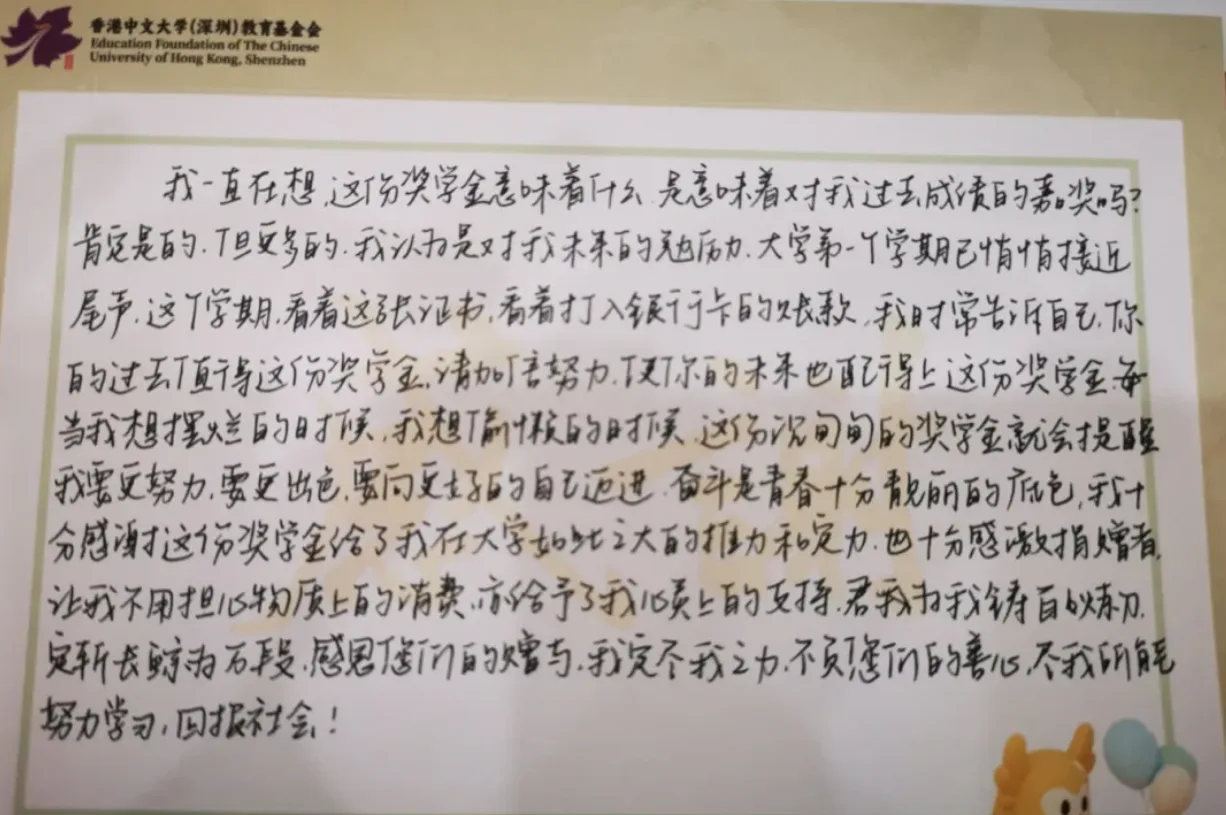 香港中文大学(深圳)教育基金会
Education Foundation of The Chinese
University of Hong Kong, Shenzhen
我一直在想,这份奖学金意味着什么.是意味着对我过去成绩的嘉奖吗?
肯定是的.但更多的.我认为是对我未来的勉励.大学第一个学期已悄悄接近
尾声.这个学期.看着这张证书.看着打入银行卡的账款.我时常告诉自己.你
的过去值得这份奖学金.请加倍努力.使你的未来也配得上这份奖学金.每
当我想摆烂的时候,我想偷懒的时候.这份沉甸甸的奖学金就会提醒
我要更努力.要更出色.要向更好的自己迈进.奋斗是青春十分靓丽的底色,我十
分感谢这份奖学金给了我在大学如此之大的推力和定力.也十分感激捐赠者,
让我不用担心物质上的消费.亦给予了我心灵上的支持.君我为我铸百炼刀.
定斩长鲸为万段.感恩您们的赠与.我定尽我之力.不负您们的善心.尽我所能
努力学习,回报社会!